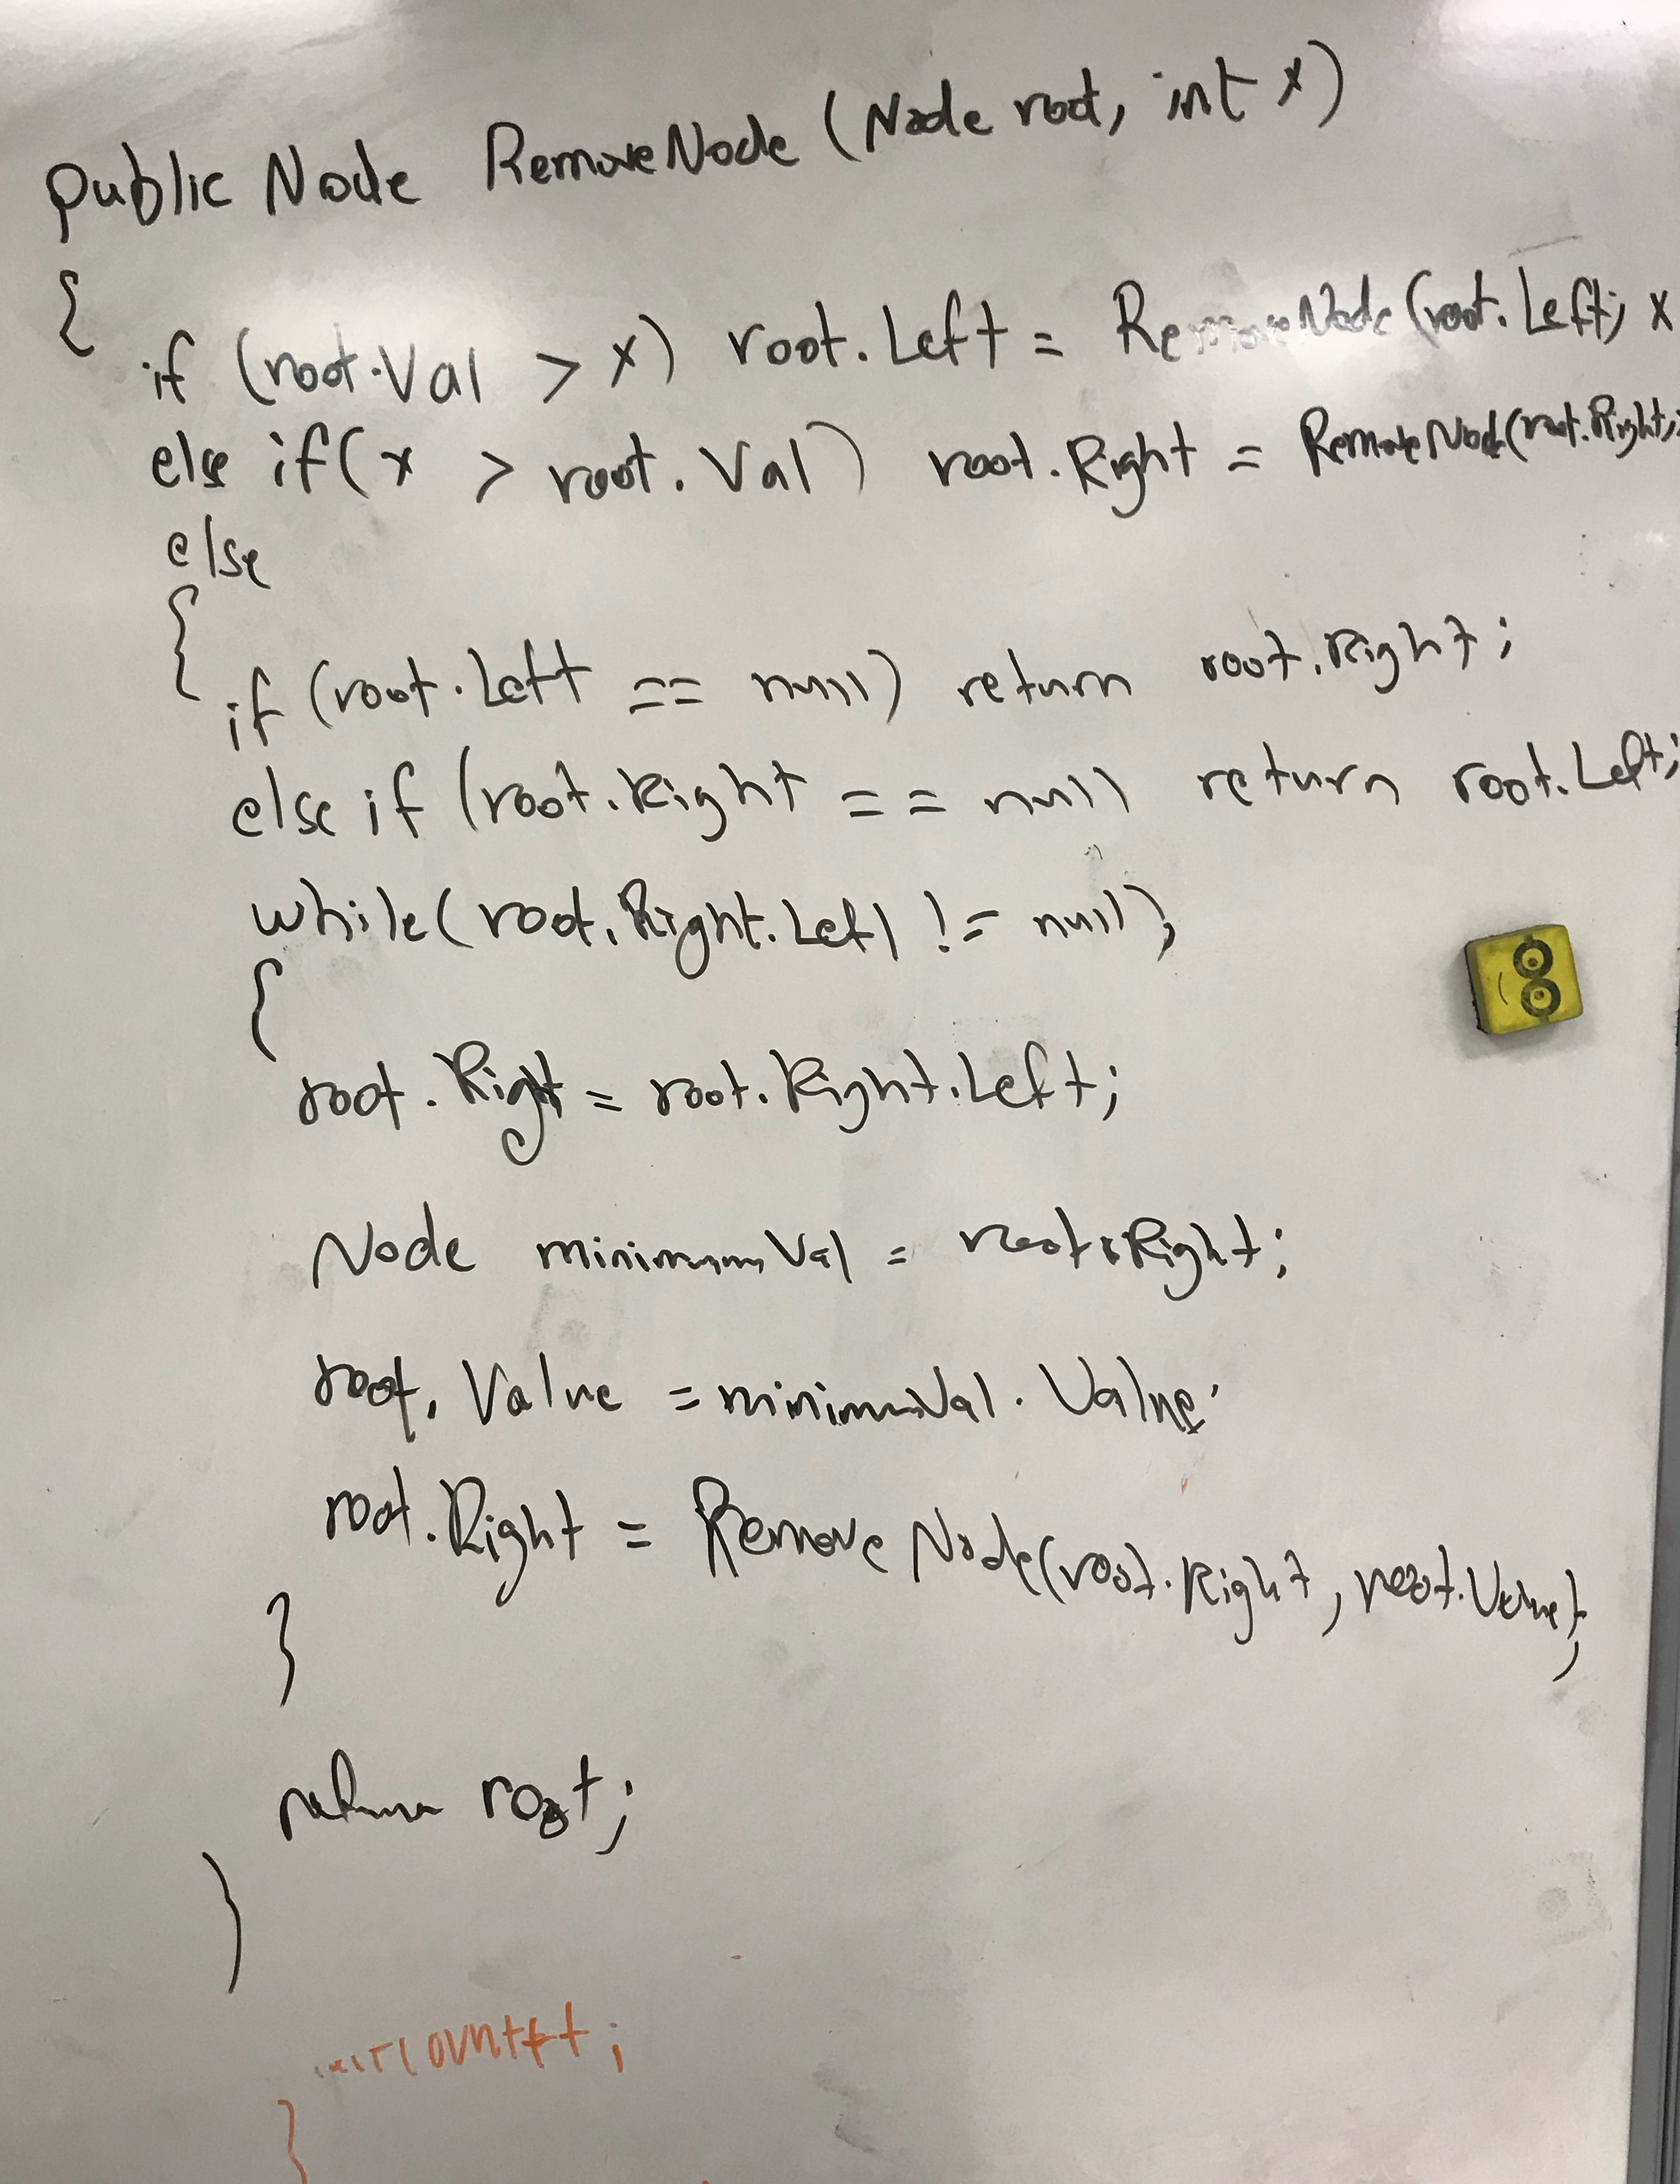 public Node RemoveNode (Node root, int x)
{
if (root.Val > x) root.Left = RemoveNode (root.Left, x
else if (x > root.Val) root.Right = RemoveNode(root.Right,
else
{
if (root.Left == null) return root.Right;
else if (root.Right == null return root.Left;
while (root.Right.Left != null);
{
root.Right = root.Right.Left;
Node minimumVal = root.Right;
root.Value = minimumVal.Value;
root.Right = RemoveNode(root.Right, root.Value);
}
return root;
}
Count++;
}